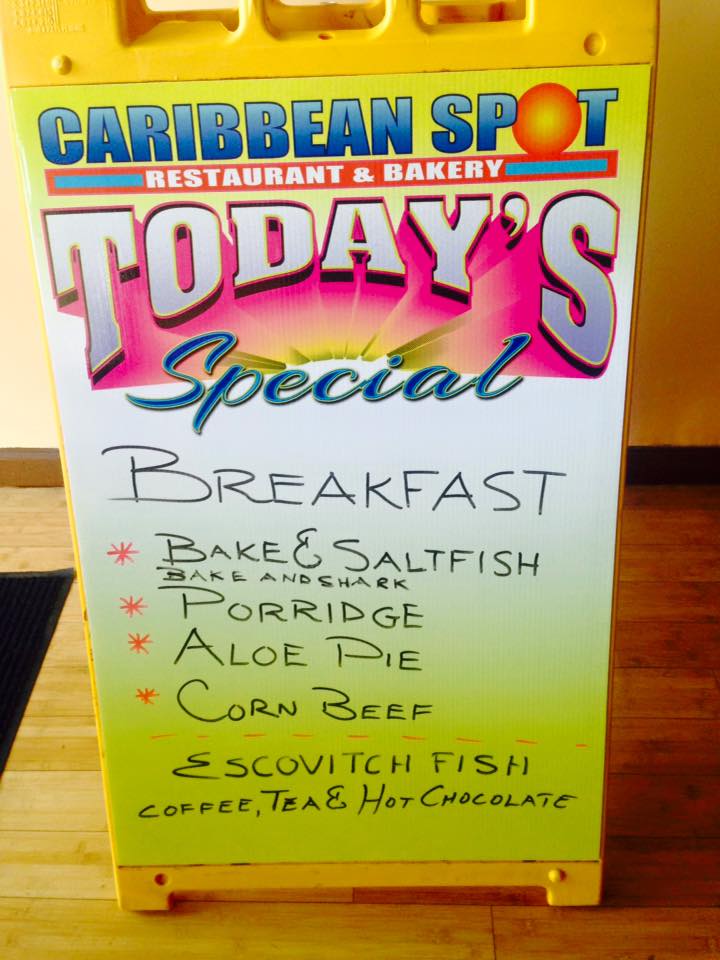 CARIBBEAN SPOT
RESTAURANT & BAKERY
TODAY'S
Special
BREAKFAST
* BAKE & SALTFISH
BAKE AND SHARK
* PORRIDGE
* ALOE PIE
* CORN BEEF
ESCOVITCH FISH
COFFEE, TEA & HOT CHOCOLATE